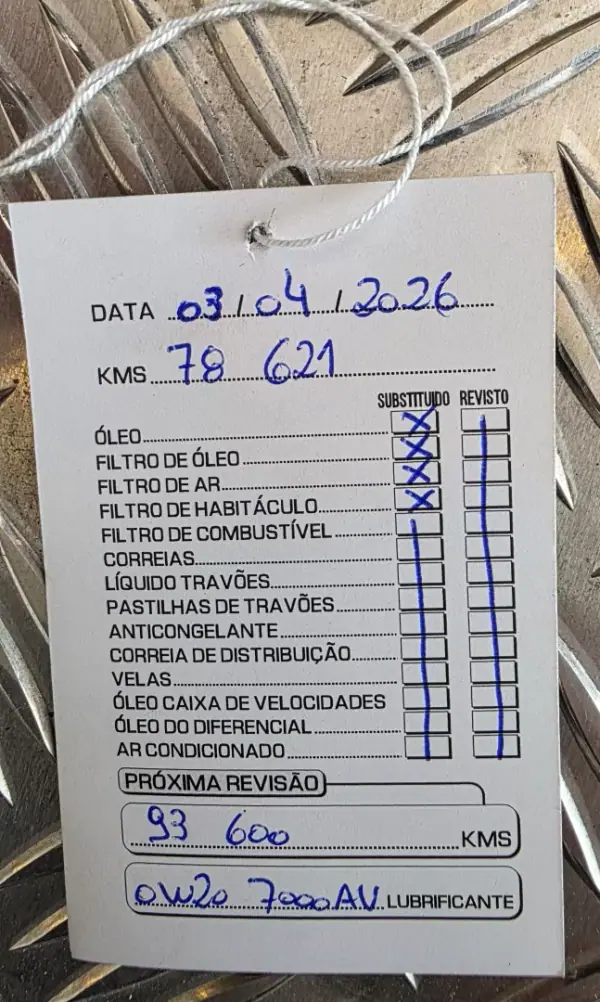 DATA 03/04/2026
KMS 78 621
SUBSTITUIDO REVISTO
ÓLEO X
FILTRO DE ÓLEO X
FILTRO DE AR X
FILTRO DE HABITÁCULO X
FILTRO DE COMBUSTÍVEL
CORREIAS
LÍQUIDO TRAVÕES
PASTILHAS DE TRAVÕES
ANTICONGELANTE
CORREIA DE DISTRIBUIÇÃO
VELAS
ÓLEO CAIXA DE VELOCIDADES
ÓLEO DO DIFERENCIAL
AR CONDICIONADO
PRÓXIMA REVISÃO
93 600 KMS
0W20 7000AV LUBRIFICANTE